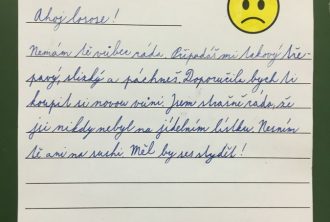 Ahoj losose!
Nemám tě vůbec ráda. Připadáš mi takový tře-
pavý, slizký a páchneš. Doporučila bych ti
koupit si novou vůni. Jsem strašně ráda, že
jsi nikdy nebyl na jídelním lístku. Nesním
tě ani na sushi. Měl by ses stydět!